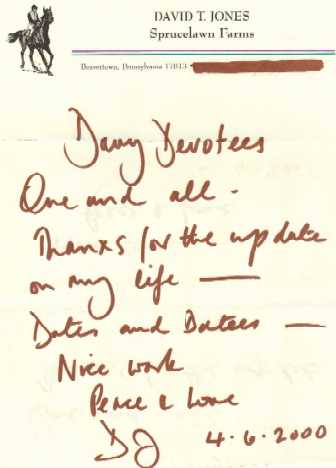 DAVID T. JONES
Sprucelawn Farms
Beavertown, Pennsylvania 17813
Davy Devotees
One and all -
Thanxs for the update
on my life —
Dates and Datees —
Nice work
Peace & Love
DJ 4·6·2000